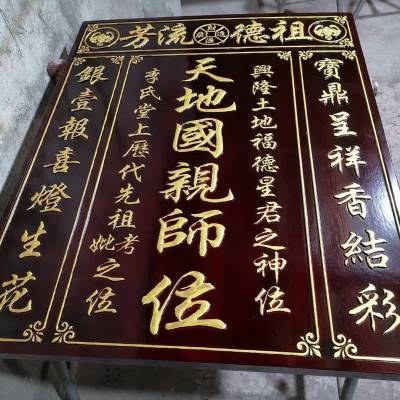 祖德流芳
寶鼎呈祥香結彩
興隆土地福德星君之神位
天地國親師位
李氏堂上歷代先祖考妣之位
銀壹報喜燈生花